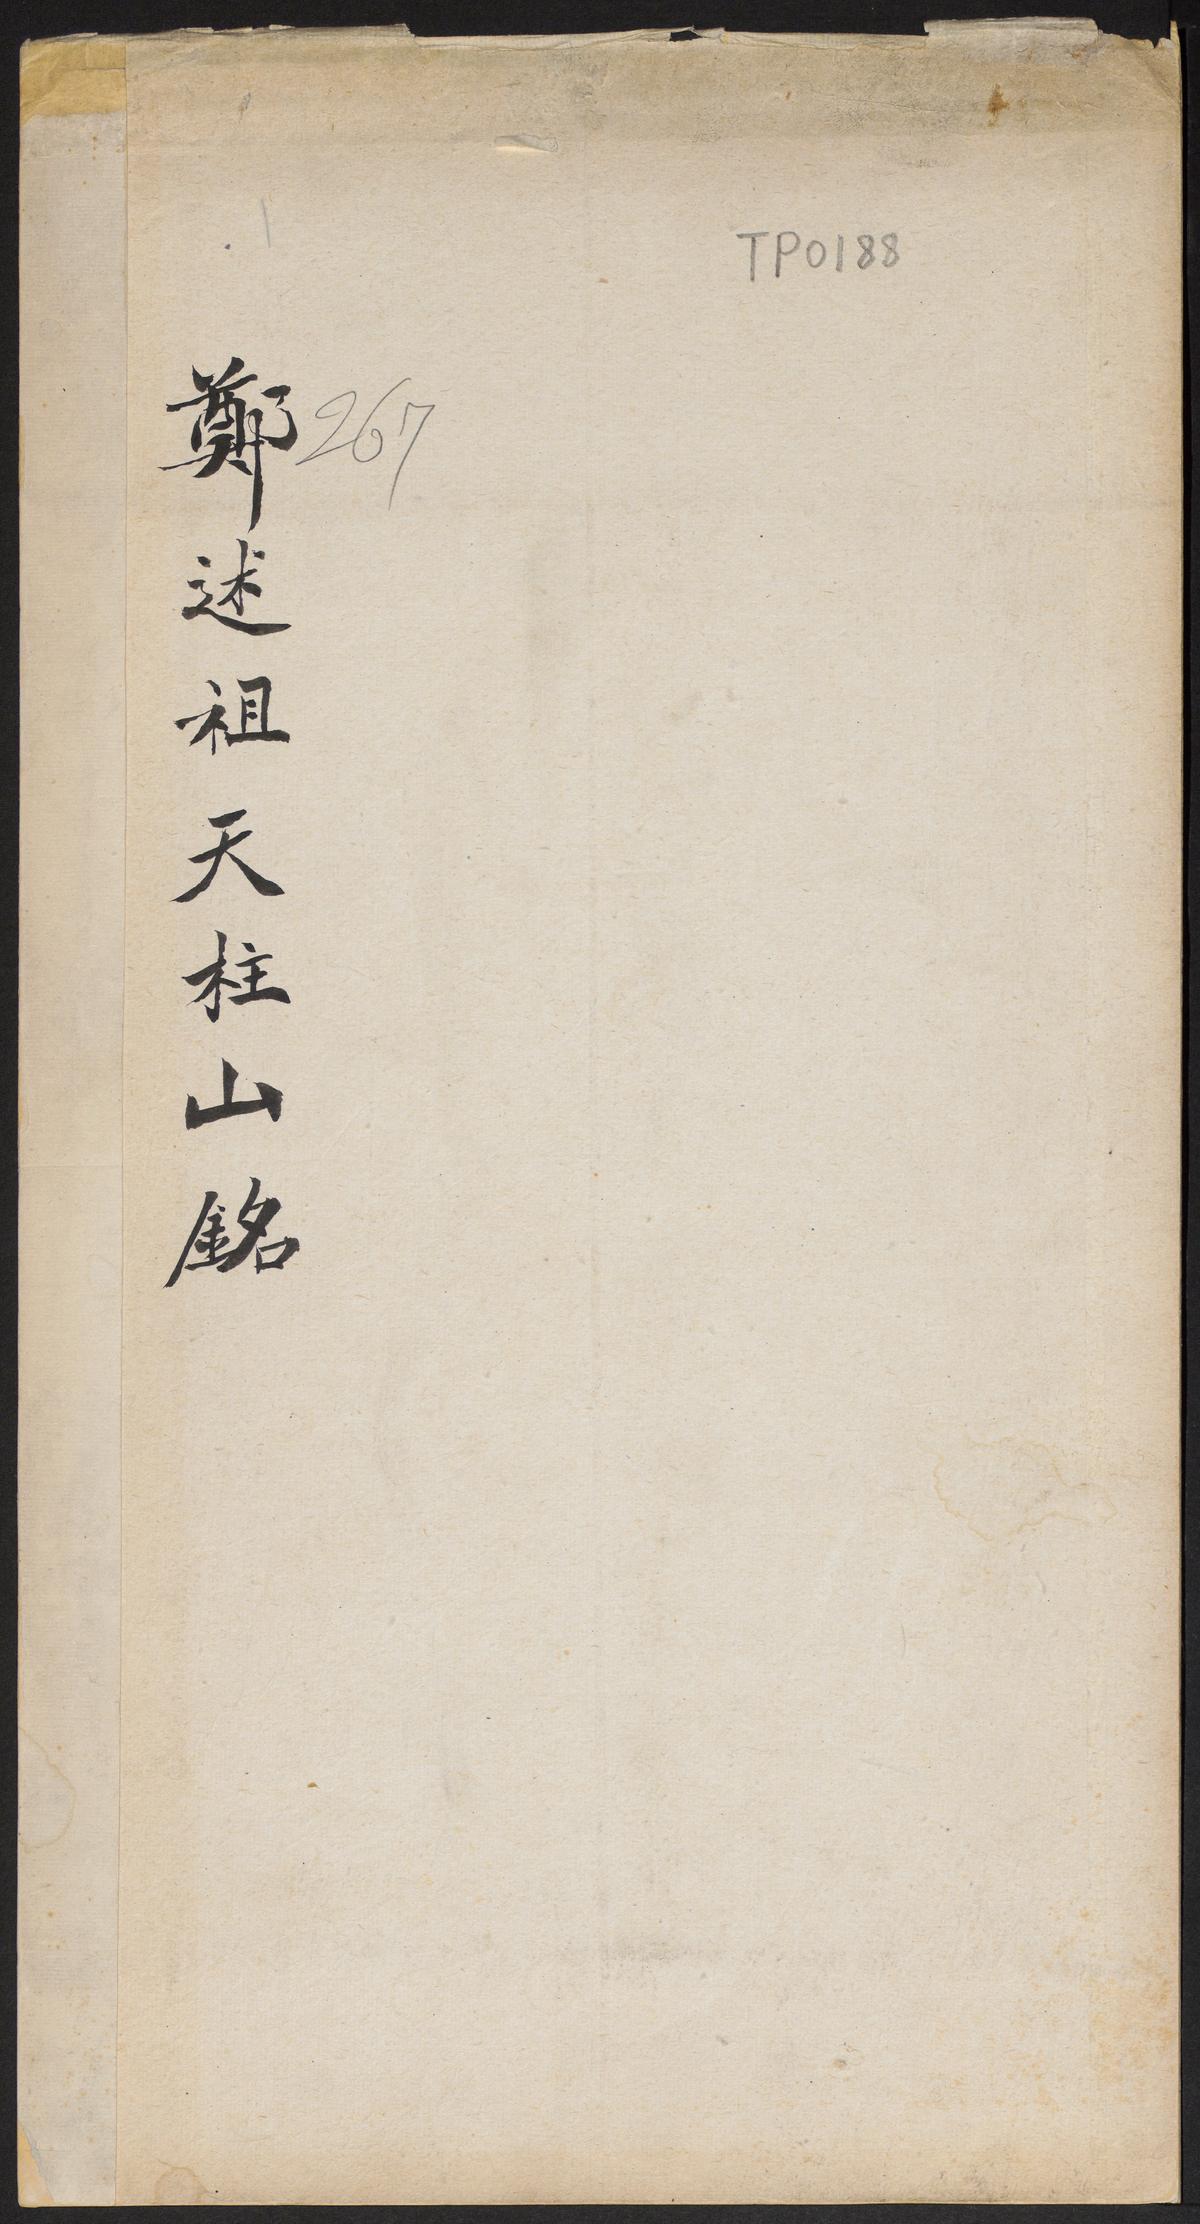 TP0188
267
鄭述祖天柱山銘